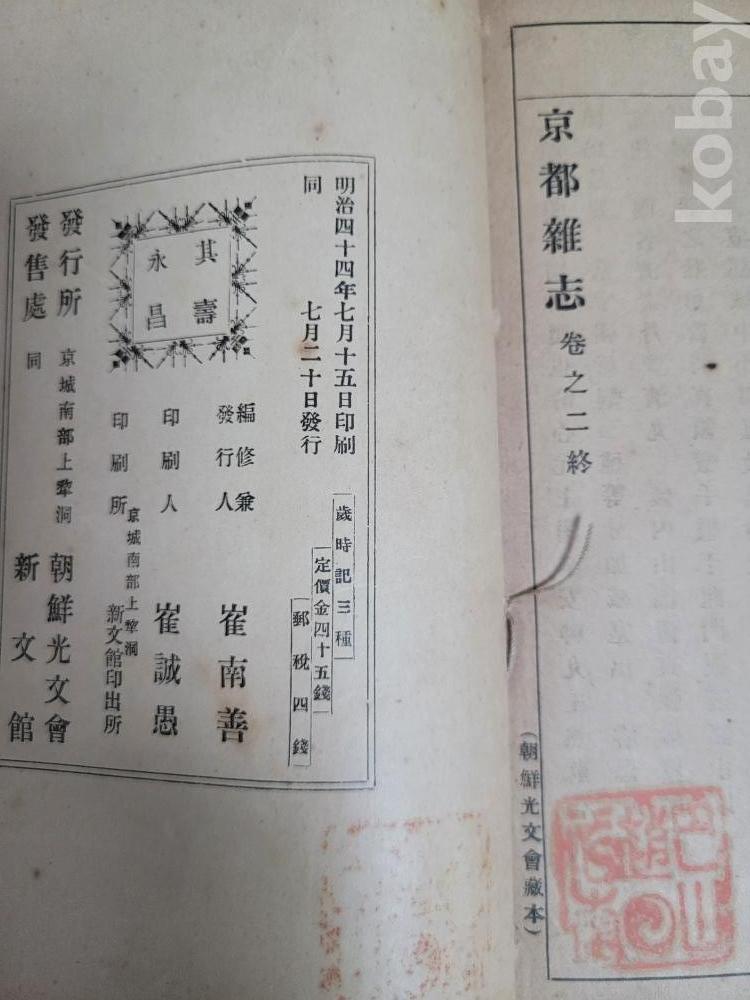 京都雜志 卷之二終
(朝鮮光文會藏本)
明治四十四年七月十五日印刷
同 七月二十日發行
歲時記三種
定價金四十五錢
郵稅四錢
其壽
永昌
編修兼
發行人 崔南善
印刷人 崔誠愚
京城南部上犂洞
印刷所 新文館印出所
發行所 京城南部上犂洞 朝鮮光文會
發售處 同 新文館
kobay